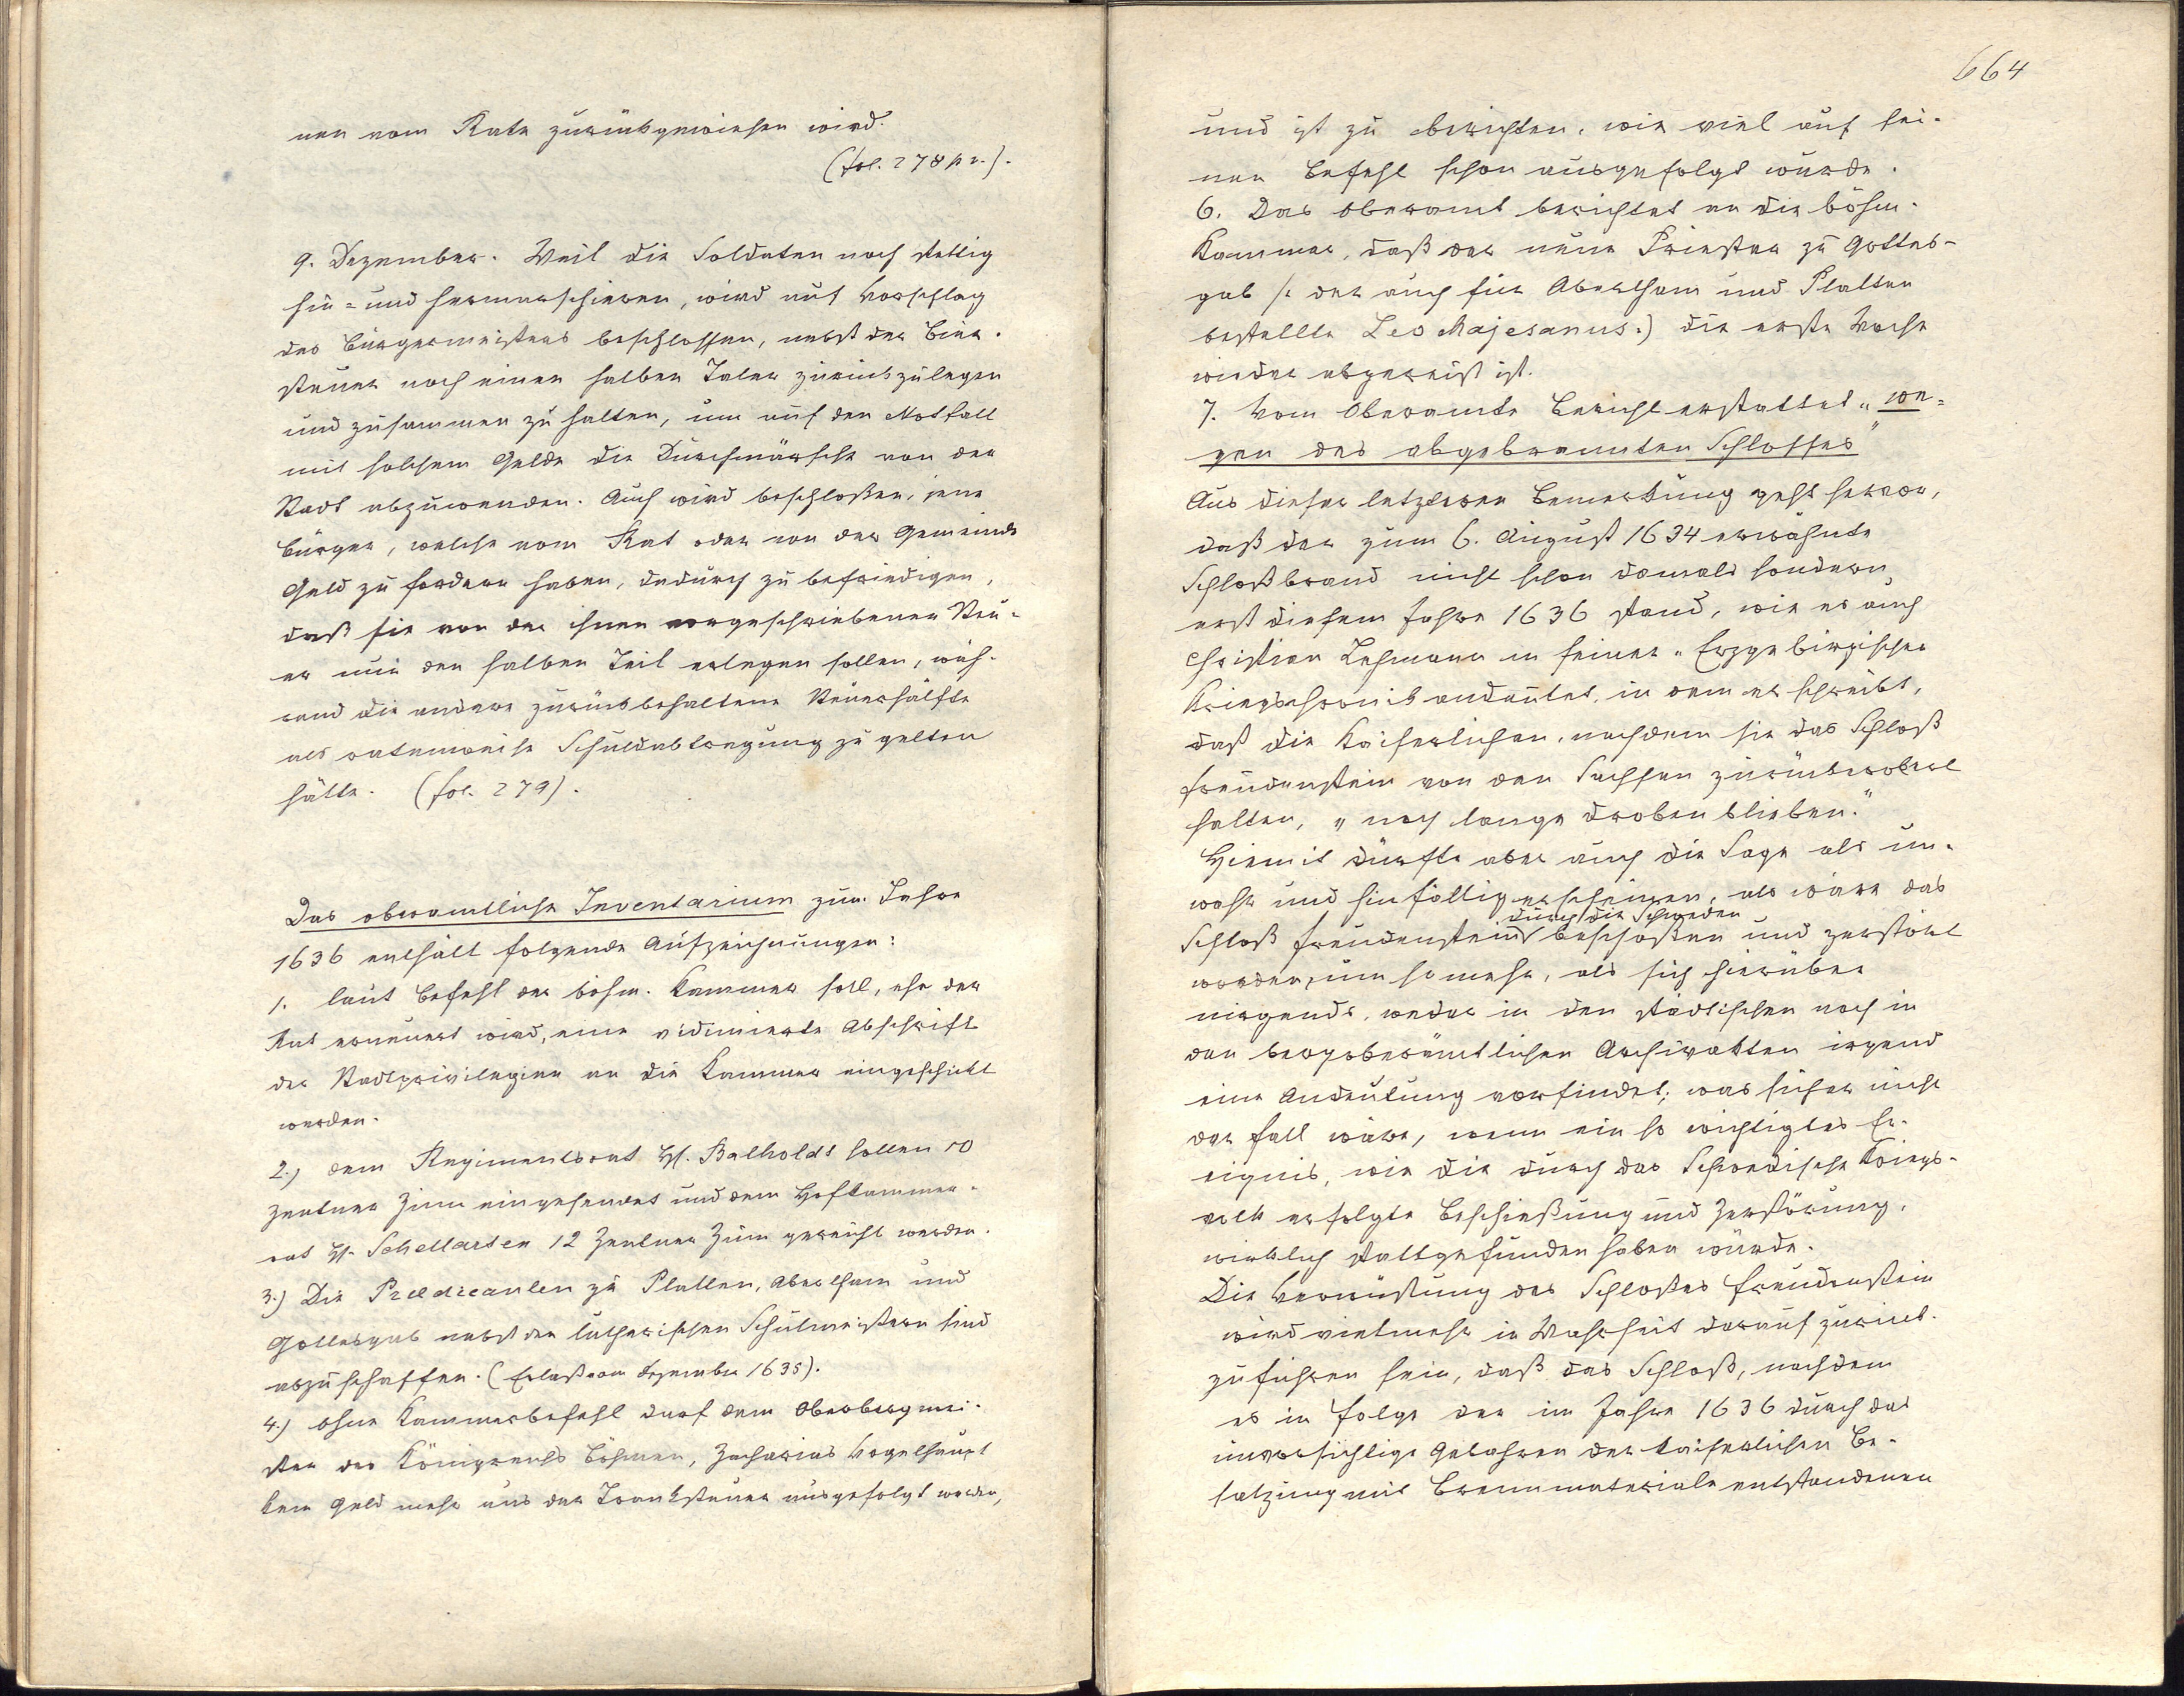 nen vom Rate zurückgewiesen wird.
(fol. 278 pr.).
9. Dezember. Weil die Soldaten noch stettig
hin- und hermarschieren, wird auf Vorschlag
des Bürgermeisters beschlossen, nebst der Bier-
steuer noch einen halben Taler zurückzulegen
und zusammen zu halten, um auf den Notfall
mit solchem Gelde die Durchmärsche von der
Stadt abzuwenden. Auch wird beschloßen, jene
Bürger, welche vom Rat oder von der Gemeinde
Geld zu fordern haben, dadurch zu befriedigen,
daß sie von der ihnen vorgeschriebenen Steu-
er nur den halben Teil erlegen sollen, wäh-
rend die andere zurückbehaltene Steuerhälfte
als ratenweise Schuldabtragung zu gelten
hätte. (fol. 279).
Das oberamtliche Inventarium zum Jahre
1636 enthält folgende Aufzeichnungen:
1. laut Befehl der böhm. Kammer soll, ehe der
Rat erneuert wird, eine vidimierte Abschrift
der Stadtprivilegien an die Kammer eingeschickt
werden.
2.) dem Regimentsrat H. Balholdt sollen 10
Zentner Zinn eingesendet und dem Hofkammer-
rat H. Schellarten 12 Zentner Zinn gereicht werden.
3.) Die Praedicanten zu Platten, Abertham und
Gottesgab nebst den lutherischen Schulmeistern sind
abzuschaffen. (Erlaß vom Dezember 1635).
4.) ohne Kammerbefehl darf dem Oberbergmei-
ster des Königreichs Böhmen, Zacharias Vogelhaupt
kein Geld mehr aus der Tranksteuer ausgefolgt werden,
664
und ist zu berichten, wie viel auf sei-
nen Befehl schon ausgefolgt wurde.
6. Das Oberamt berichtet an die böhm.
Kammer, daß der neue Priester zu Gottes-
gab /: der auch für Abertham und Platten
bestellte Leo Majesanus.) die erste Woche
wieder abgereist ist.
7. Vom Oberamte Bericht erstattet „we-
gen des abgebrannten Schlosses"
Aus dieser letzteren Bemerkung geht hervor,
daß der zum 6. August 1634 erwähnte
Schloßbrand nicht schon damals sondern
erst diesem Jahre 1636 stand, wie es auch
Christian Lehmann in seiner „Erzgebirgischen
Kriegschronik andeutet, in dem er schreibt,
daß die Kaiserlichen, nachdem sie das Schloß
Freudenstein von den Sachsen zurückerobert
hatten, „noch lange droben blieben."
Hiemit dürfte aber auch die Sage als un-
wahr und hinfällig erscheinen, als wäre das
durch die Schweden
Schloß Freudenstein beschoßen und zerstört
worden, um so mehr, als sich hierüber
nirgends, weder in den städtischen noch in
den bergoberämtlichen Archivakten irgend
eine Andeutung vorfindet; was sicher nicht
der Fall wäre, wenn ein so wichtigtes Er-
eignis, wie die durch das Schwedische Kriegs-
volk erfolgte Beschießung und Zerstörung,
wirklich stattgefunden haben würde.
Die Verwüstung des Schloßes Freudenstein
wird vielmehr in Wahrheit darauf zurück-
zuführen sein, daß das Schloß, nachdem
es in Folge der im Jahre 1636 durch das
unvorsichtige Gebahren der kaiserlichen Be-
satzung mit Brennmateriale entstandenen